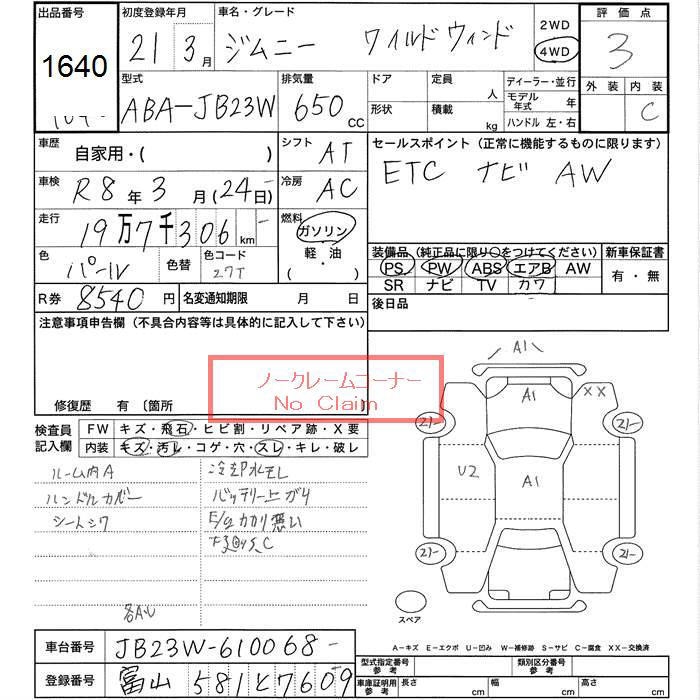 出品番号 初度登録年月 車名・グレード 2WD 評価点
1640 21年3月 ジムニー ワイルドウィンド 4WD 3
型式 排気量 ドア 定員 ディーラー・並行 外装 内装
ABA-JB23W 650 CC 形状 積載 人 kg モデル年式 年 ハンドル 左・右 C
車歴 自家用・( ) シフト AT セールスポイント (正常に機能するものに限ります)
車検 R8年3月(24日) 冷房 AC ETC ナビ AW
走行 19万7千306km 燃料 ガソリン・軽・油・( )
色 パール 色替 色コード 27T
装備品 (純正品に限り○をつけてください) 新車保証書
PS PW ABS エアB AW 有・無
SR ナビ TV カワ
R券 8540円 名変通知期限 月 日 後日品
注意事項申告欄 (不具合内容等は具体的に記入して下さい)
ノークレームコーナー
No Claim
修復歴 有 〔箇所
検査員記入欄 FW キズ・飛石・ヒビ割・リペア跡・X要
内装 キズ・汚レ・コゲ・穴・スレ・キレ・破レ
ルーム内A 冷却水モレ
ハンドルカバー バッテリー上ガリ
シートシワ E/gカカリ悪い
A1
A1 XX
21- 21-
U2 A1
21- 21-
スペア
A-キズ E-エクボ U-凹み W-補修跡 S-サビ C-腐食 XX-交換済
車台番号 JB23W-610068-
登録番号 富山 581 と 7609
型式指定番号 参考 類別区分番号 参考
車庫証明用 参考 長さ cm 幅 cm 高さ cm